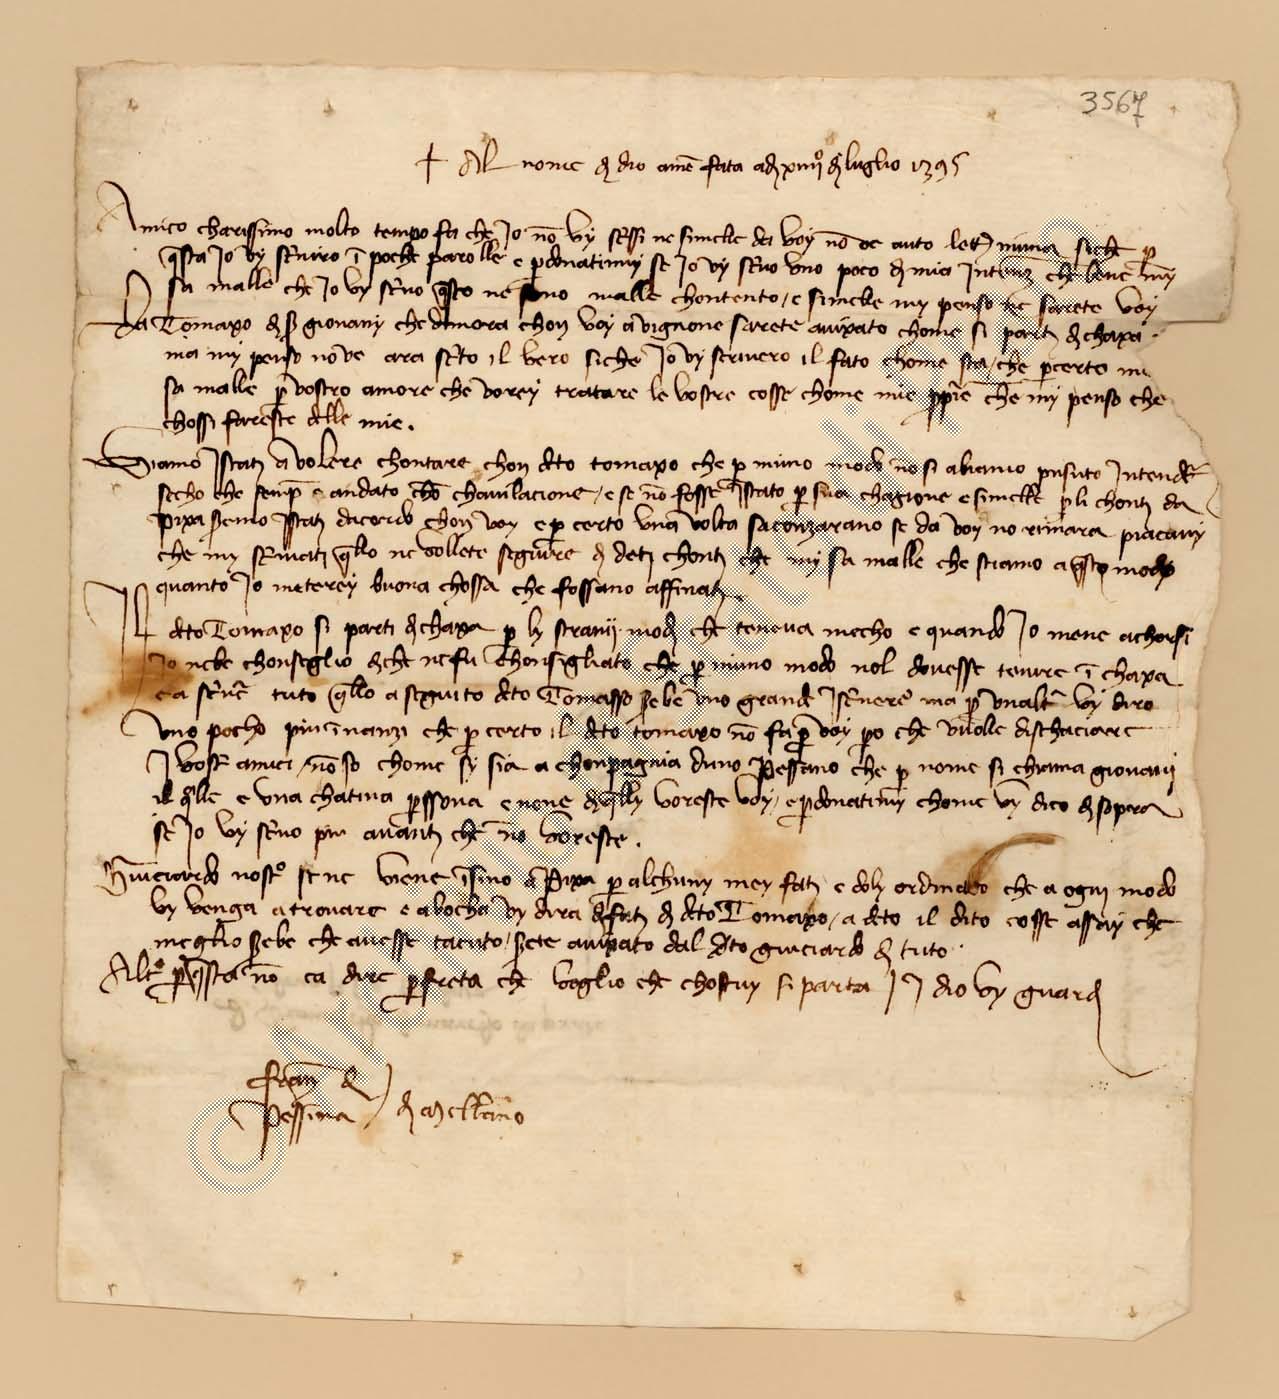 3567
† Al nome di dio amē fata adj xiiijº dj luglio 1395
Amico charissimo molto tempo fa che Jo nō vy scrissi ne simelle da voy nō oe auto letª niuna siche p
q̄sta Jo vy scriviro ī poche parolle e pdonatimy se Jo vy scrivo uno poco di mia Jntenz che bene my
sa malle che Jo vy scrivo q̄sto ne sono malle chontento / e simele my penso ne sarrete voy
Da Tomaxo dj s giovanj che dimora chon voy a vignone sarrete avixato chome si parti dj chaxa
ma my penso nō ve ara scrito il vero siche Jo vy scrivero il fato chome sta / che p certo mi
sa malle p vostro amore che vorey tratare le vostre cosse chome mie ppie che my penso che
chossi fareste delle mie .
Siamo Jstatj a volere chontare chon dto tomaxo che p niuno modo nō si abiamo posuto Jntendē
secho che semp e andato chō chavilacione / e se nō fosse Jstato p sua chagione e simelle pli chontj da
pixa semo Jstatj dacordo chon voy e p certo una volta saconzarano se da voy no rimara piacavy
che my scrivatj q̄llo ne vollete seguire dj detj chontj che my sa malle che stiamo a q̄sto modo
quanto Jo meterey buona chossa che fossano affinatj
Il dto Tomaxo si parti dj chaxa p ly stranij modj che teneva mecho e quando Jo mene achorsi
Jo nebe chonseglio dche ne fu chonsigliato che p niuno modo nol dovesse tenire ī chaxa
e a scrive tuto q̄llo a seguito dto Tomasso sebe uno grande Jscrivere ma p unaltª vy diro
uno pocho piu inanzi che p certo il dto tomaxo nō fa p voy po che vuolle dischaciare
J vostri amici / nō so chome sy sia a chonpagnia duno Pessano che p nome si chiama giovanj
il q̄lle e una chativa pssona e none dj q̄lly voreste voy / e pdonatimy chome vy dico dj sopera
se Jo vy scrivo piu avantj che nō voreste .
Guiciardo nostº se ne viene īsino a Pixa p alchuny mey fatj e doly ordinato che a ognj modo
vy venga a trovare e a bocha vy dira dj fatj dj dto Tomaxo / a dto il dito cosse assay che
meglio sebe che avesse taciuto / sete avixato dal dto guiciardo dj tuto
Altº p q̄sta nō ca dire p freta che voglio che chostuy si parta J J dio vy guardj
Fran d
Pessina } dj Mellano